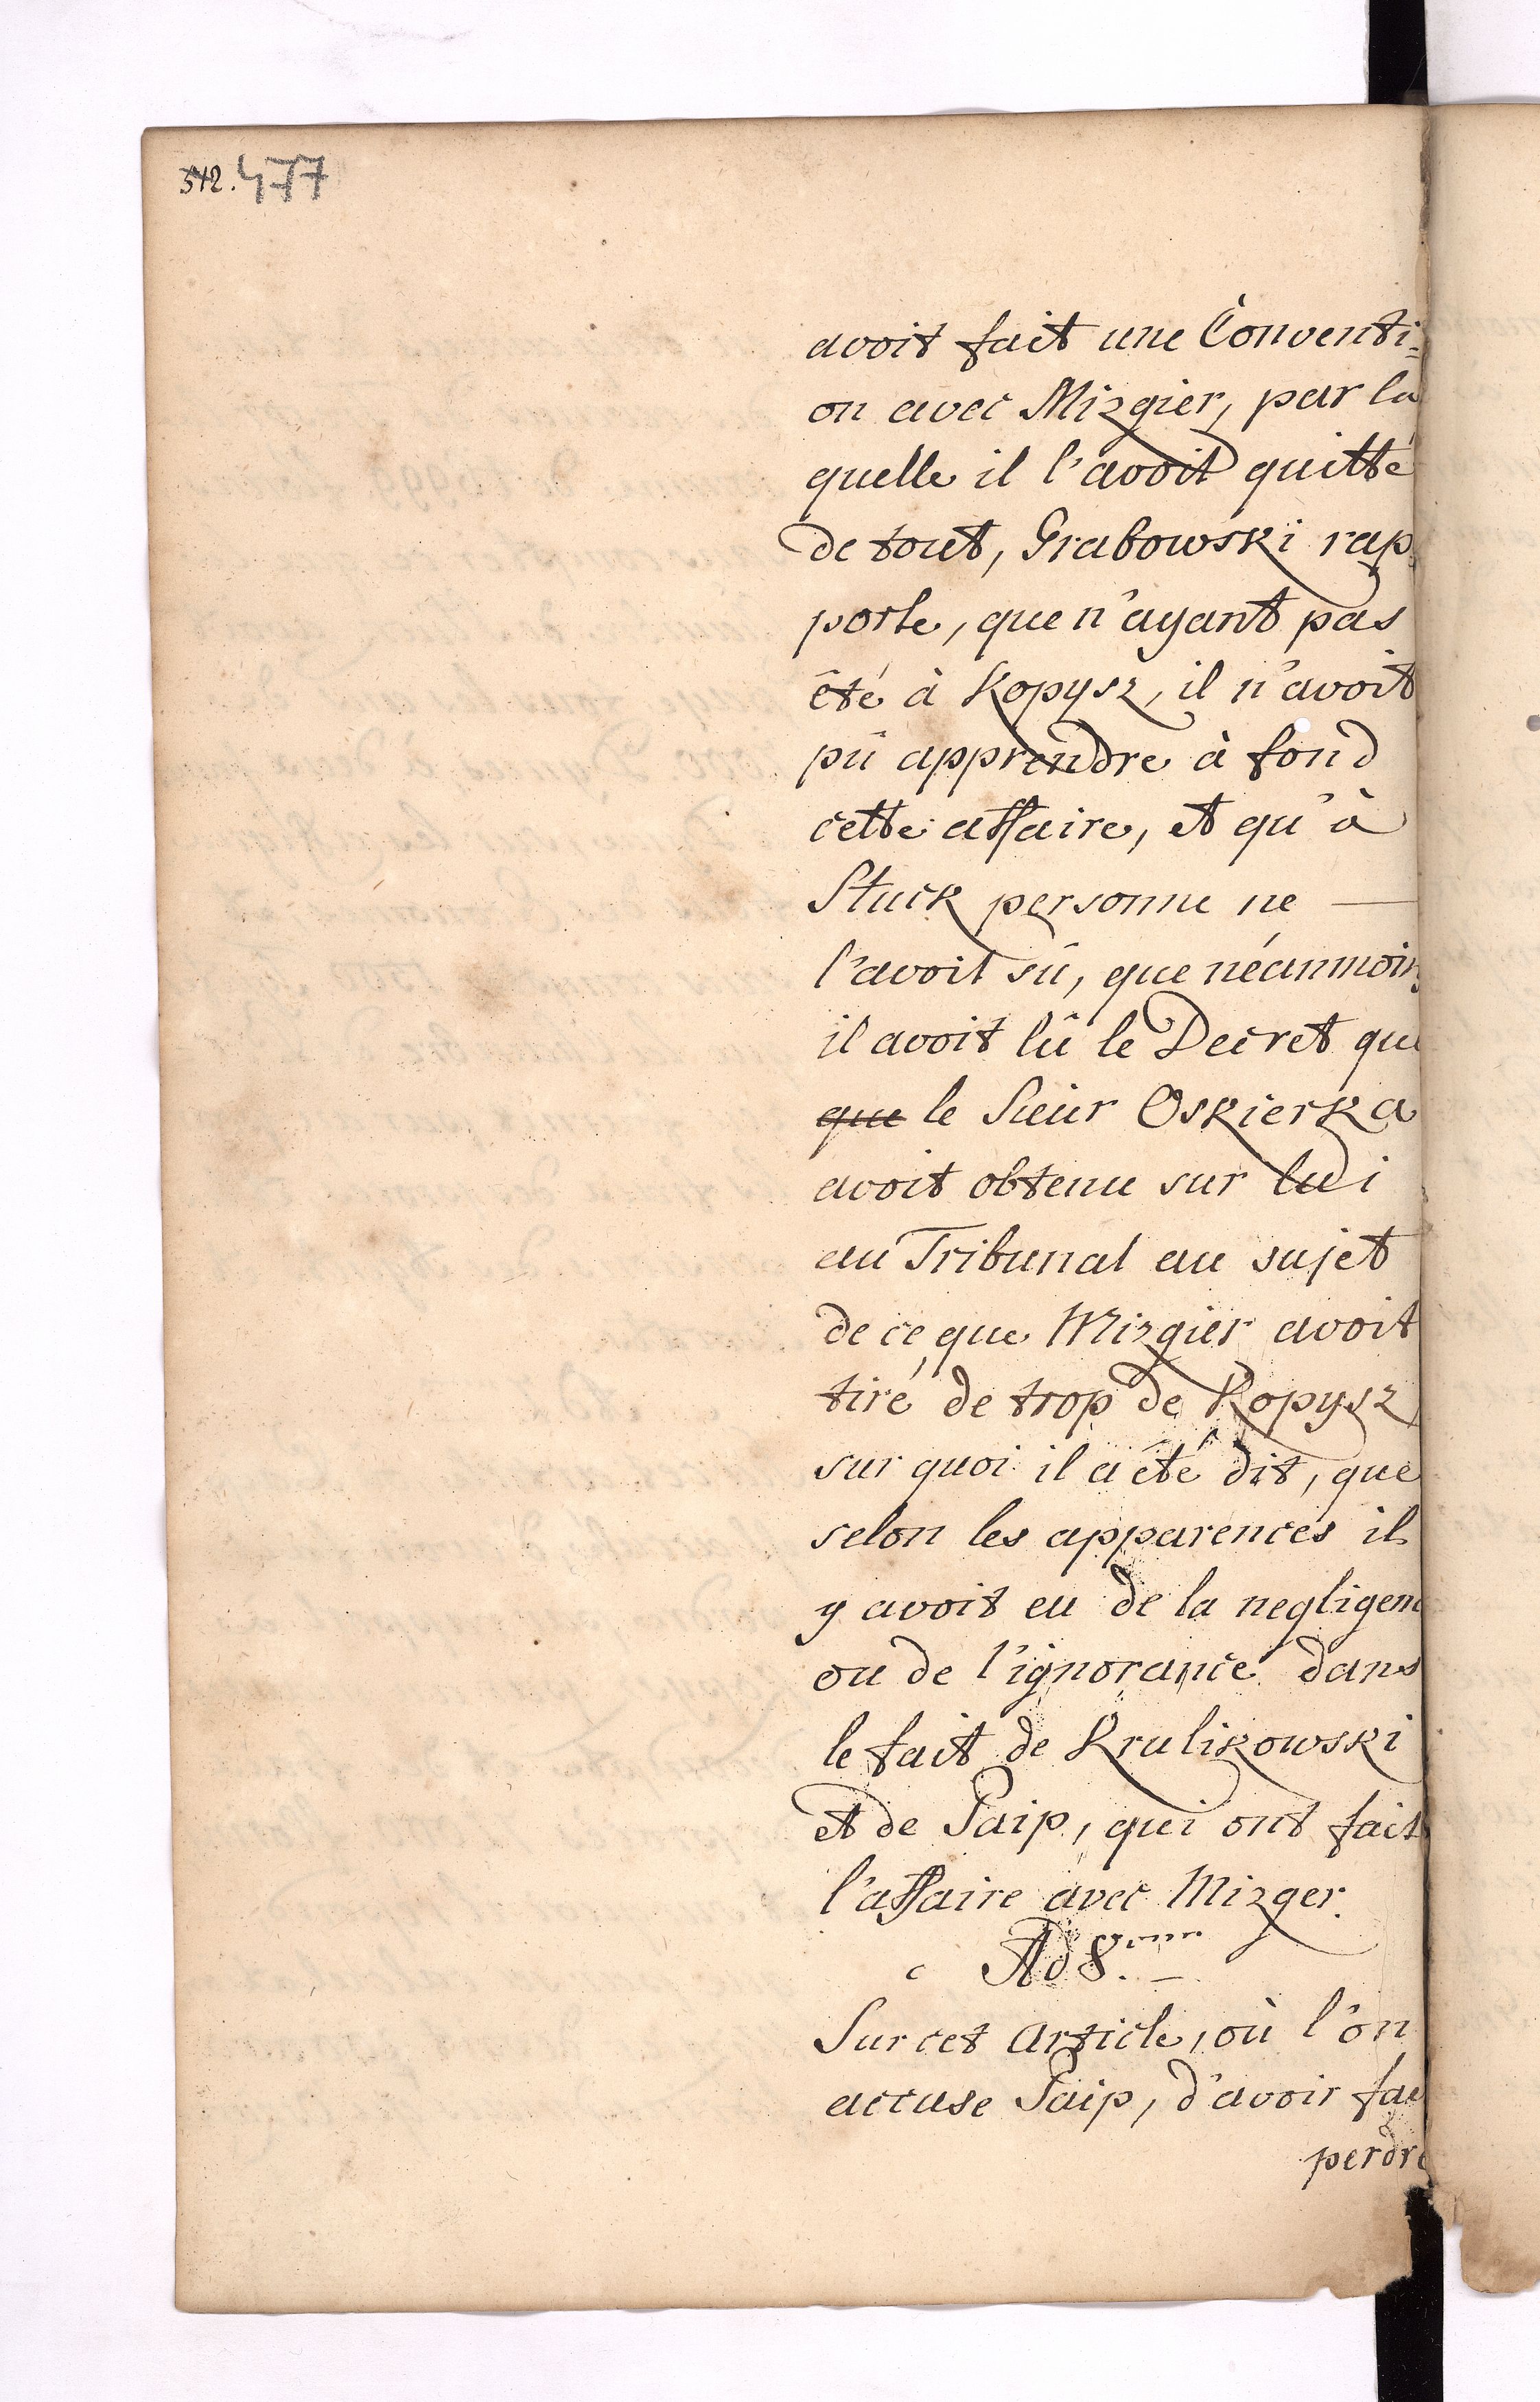 542. 477
avoit fait une Conventi=
on avec Mizgier, par la
quelle il l'avoit quitté
de tout, Grabowski rap
porte, que n'ayant pas
été à Kopysz, il n'avoit
pû apprendre à fond
cette affaire, et qu'à
Stuck personne ne —
l'avoit sû, que néanmoins
il avoit lû le Decret que
~~que~~ le Sieur Oskierka
avoit obtenu sur lui
au Tribunal au sujet
de ce que Mizgier avoit
tiré de trop de Kopysz
sur quoi il a été dit, que
selon les apparences il
y avoit eu de la negligenc
ou de l'ignorance dans
le fait de Krulikowski
et de Paip, qui ont fait
l'affaire avec Mizger.
Ad 8.
Sur cet article, où l'on
accuse Paip, d'avoir fai
perdre